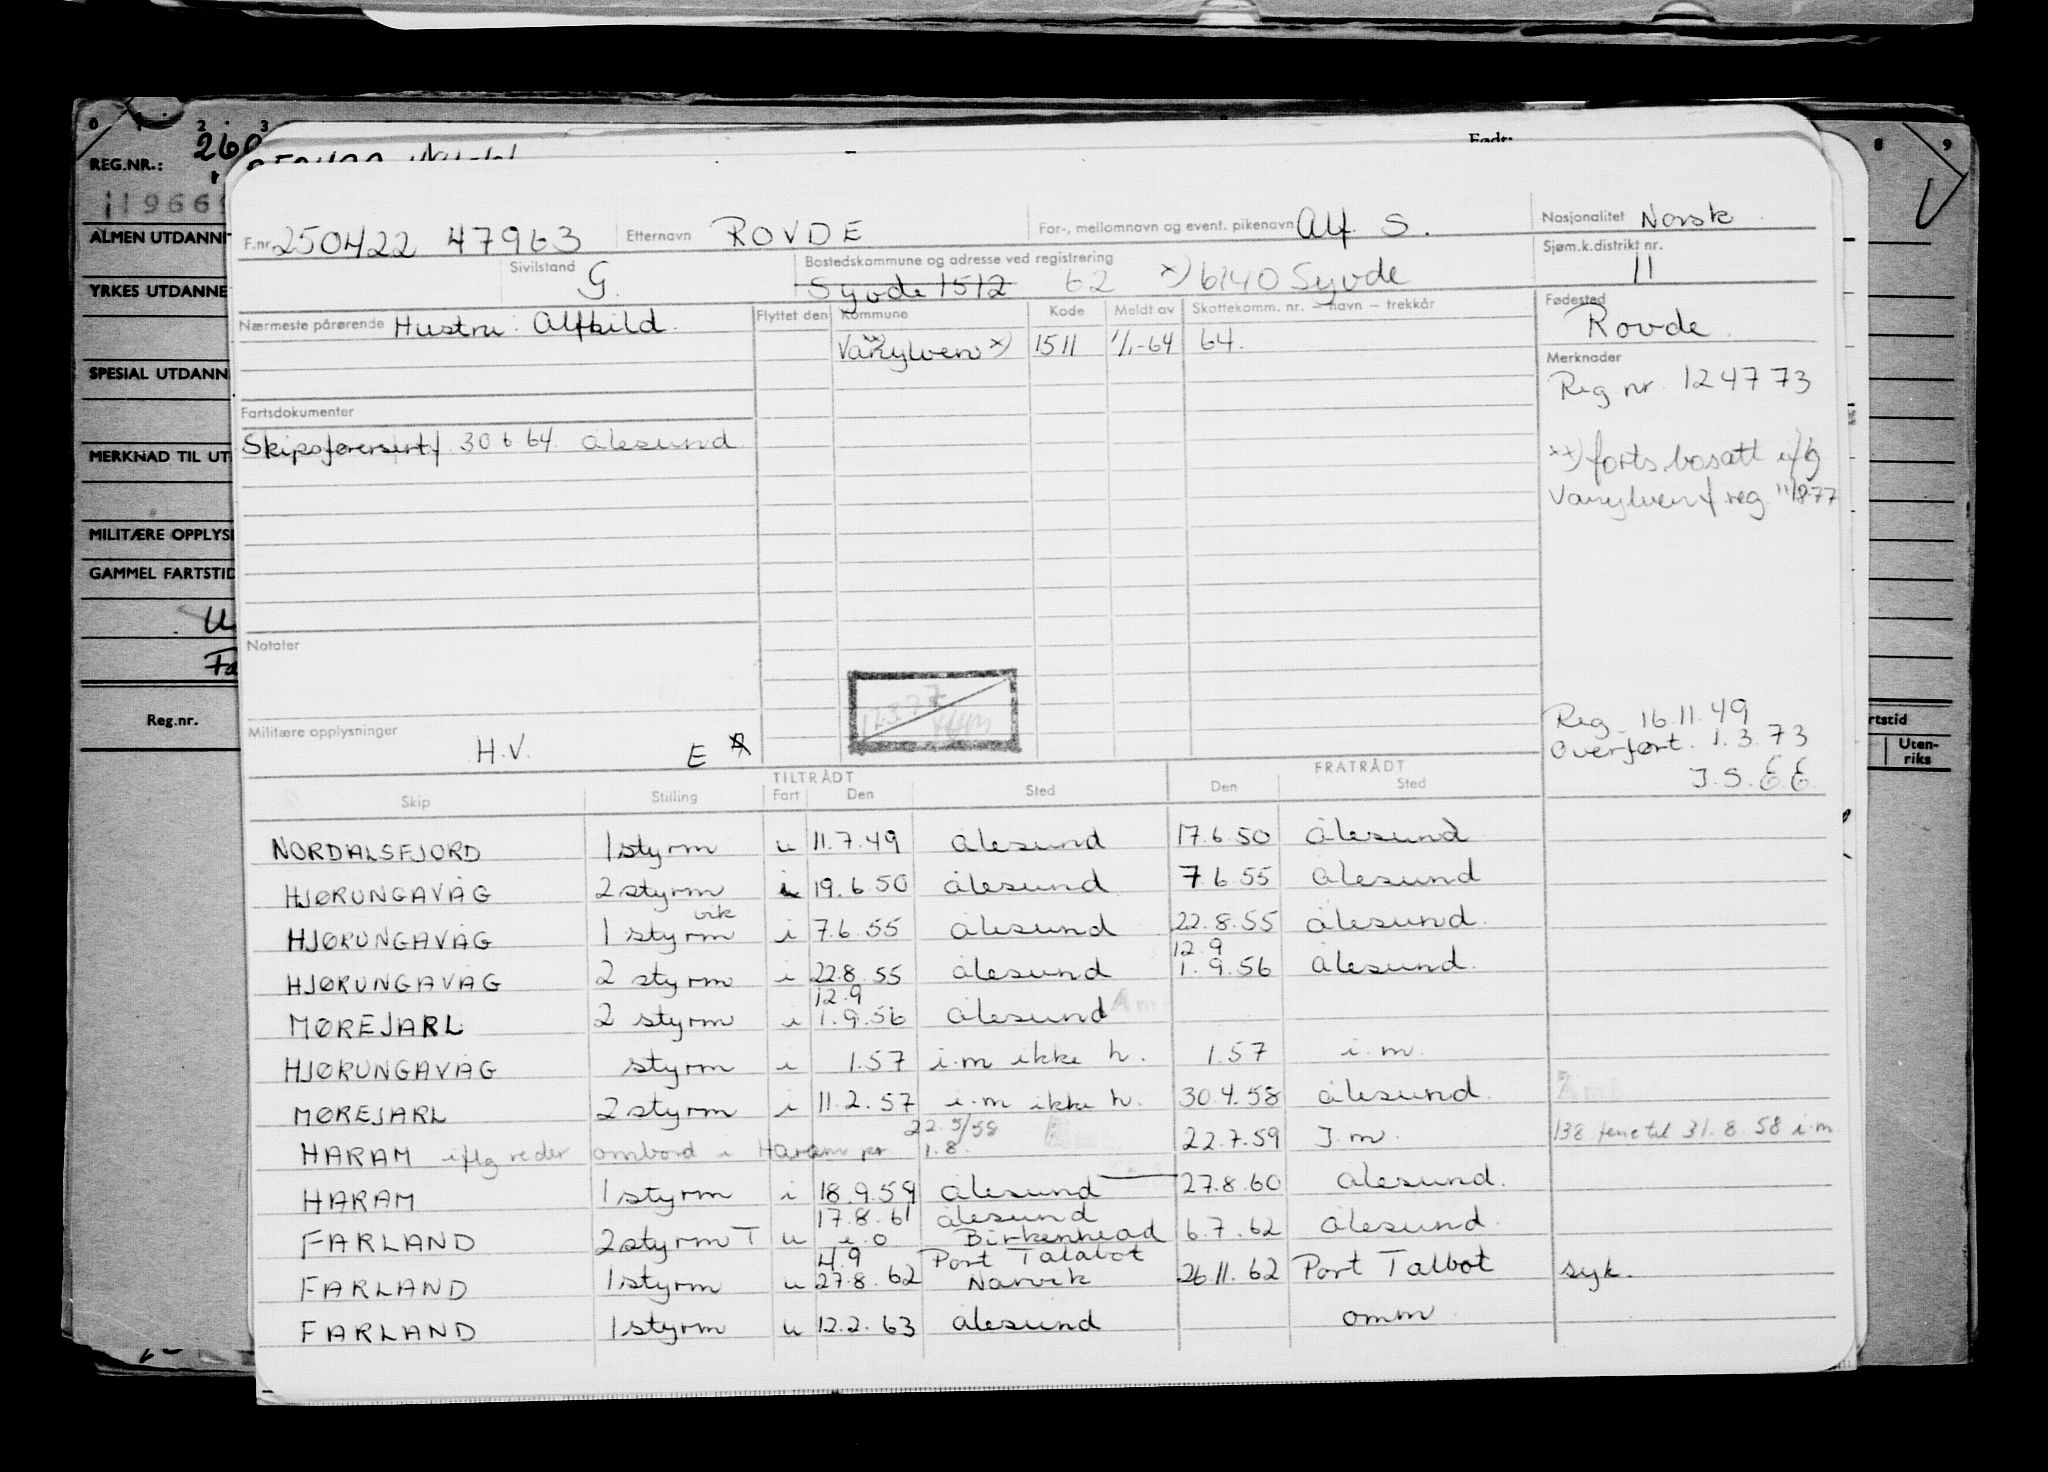 0 1 2 3
8 9
REG.NR.: 260
119669
ALMEN UTDANNI
YRKES UTDANNE
SPESIAL UTDANN
MERKNAD TIL UT
MILITÆRE OPPLYSI
GAMMEL FARTSTID
Reg.nr.
rtstid
Uten-
riks
Født:
F.nr. 250422 47963 Etternavn ROVDE For-, mellomnavn og event. pikenavn Alf S. Nasjonalitet Norsk
Sivilstand G. Bostedskommune og adresse ved registrering Syvde 1512 62 x) 6140 Syvde Sjøm.k.distrikt nr. 11
Nærmeste pårørende Hustru: Alfhild. Flyttet den Kommune Kode Meldt av Skattekomm. nr. – navn – trekkår Fødested Rovde.
Vanylven x) 1511 1/1-64 64.
Merknader
Reg nr. 124773
Fartsdokumenter
Skipsførersertf 30.6.64. Ålesund
xx) forts. bosatt i/flg
Vanylven f. reg. 11/8-77
Notater
Militære opplysninger H.V. E
Reg. 16.11.49
Overført. 1.3.73
J.S.
TILTRÅDT FRATRÅDT
Skip Stilling Fart Den Sted Den Sted
NORDALSFJORD 1 styrm u 11.7.49 Ålesund 17.6.50 Ålesund
HJØRUNGAVÅG 2 styrm i 19.6.50 Ålesund 7.6.55 Ålesund
HJØRUNGAVÅG 1 styrm vik i 7.6.55 Ålesund 22.8.55 Ålesund.
HJØRUNGAVÅG 2 styrm i 22.8.55 Ålesund 12.9 1.9.56 Ålesund.
MØREJARL 2 styrm i 12.9 1.9.56 Ålesund
HJØRUNGAVÅG styrm i 1.57 i.m ikke h. 1.57 i.m.
MØREJARL 2 styrm i 11.2.57 i.m ikke h. 30.4.58 Ålesund.
HARAM iflg reder ombord i Haram pr 22.5/58 1.8. 22.7.59 J.m. 138 ferie til 31.8.58 i.m
HARAM 1 styrm i 18.9.59 Ålesund 27.8.60 Ålesund.
FARLAND 2 styrm T u 17.8.61 i.o Ålesund Birkenhead 6.7.62 Ålesund.
FARLAND 1 styrm u 4.9 27.8.62 Port Talabot Narvik 26.11.62 Port Talbot syk.
FARLAND 1 styrm u 12.2.63 Ålesund omm